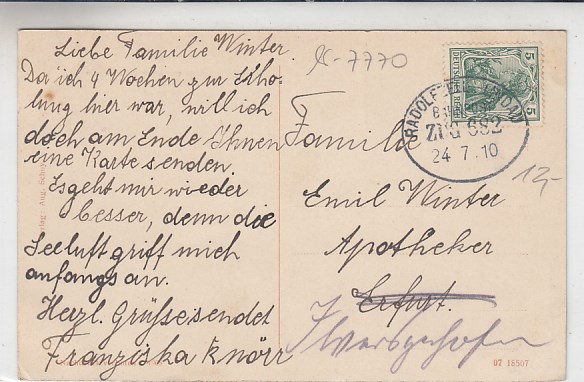 Liebe Familie Winter.
Da ich 4 Wochen zur Erho-
lung hier war, will ich
doch am Ende Ihnen
eine Karte senden.
Es geht mir wieder
besser, denn die
Seeluft griff mich
anfangs an.
Herzl. Grüsse sendet
Franziska Knörr
7770
DEUTSCHES REICH
5
5
RADOLFZELL LINDAU
ZUG 692
24 7 10
12,-
Familie
Emil Winter
Apotheker
Erfurt.
07 18557